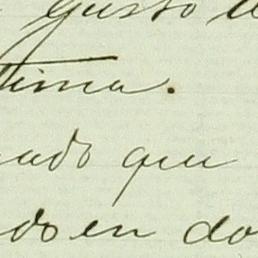 gusto
tima.
ado que
do en do